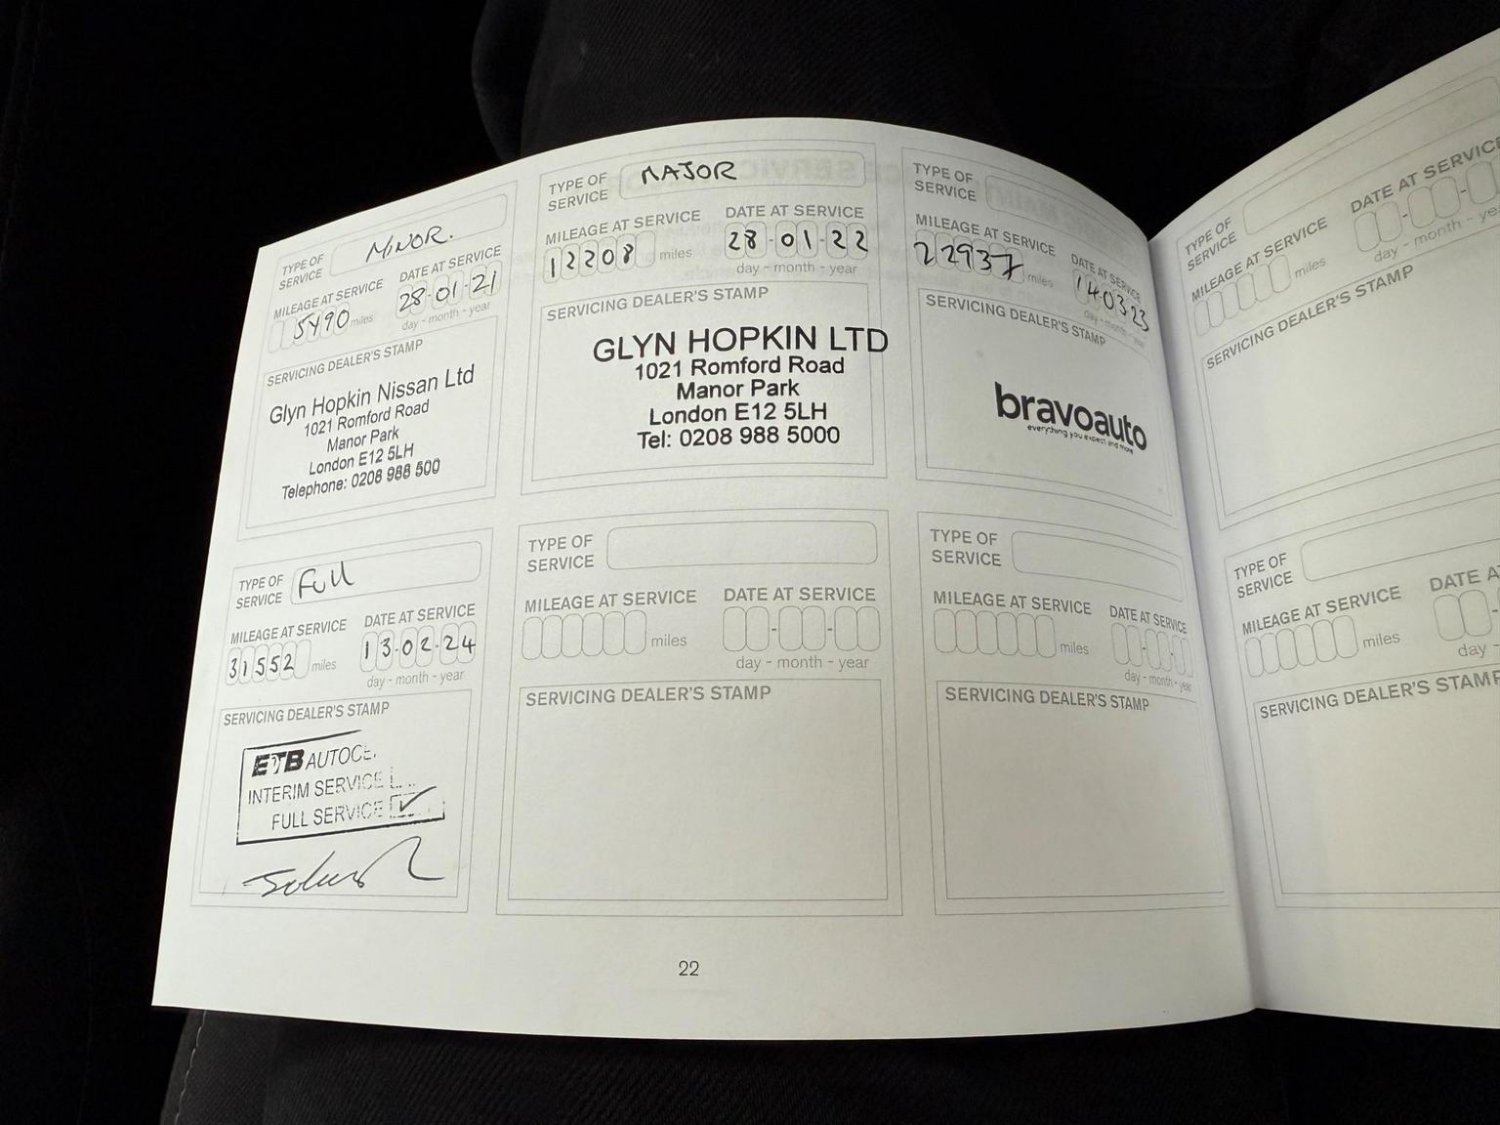 TYPE OF SERVICE MINOR.
MILEAGE AT SERVICE DATE AT SERVICE
5490 miles 28-01-21
day - month - year
SERVICING DEALER'S STAMP
Glyn Hopkin Nissan Ltd
1021 Romford Road
Manor Park
London E12 5LH
Telephone: 0208 988 500
TYPE OF SERVICE MAJOR
MILEAGE AT SERVICE DATE AT SERVICE
12208 miles 28-01-22
day - month - year
SERVICING DEALER'S STAMP
GLYN HOPKIN LTD
1021 Romford Road
Manor Park
London E12 5LH
Tel: 0208 988 5000
TYPE OF SERVICE
MILEAGE AT SERVICE DATE AT SERVICE
22937 miles 140323
day - month - year
SERVICING DEALER'S STAMP
bravoauto
everything you expect and more
TYPE OF SERVICE Full
MILEAGE AT SERVICE DATE AT SERVICE
31552 miles 13-02-24
day - month - year
SERVICING DEALER'S STAMP
ETB AUTOCE
INTERIM SERVICE
FULL SERVICE
TYPE OF SERVICE
MILEAGE AT SERVICE DATE AT SERVICE
miles - -
day - month - year
SERVICING DEALER'S STAMP
TYPE OF SERVICE
MILEAGE AT SERVICE DATE AT SERVICE
miles - -
day - month - year
SERVICING DEALER'S STAMP
22
TYPE OF SERVICE
MILEAGE AT SERVICE DATE AT SERVICE
miles - -
day - month - ye
SERVICING DEALER'S STAMP
TYPE OF SERVICE
MILEAGE AT SERVICE DATE A
miles -
day -
SERVICING DEALER'S STAMP